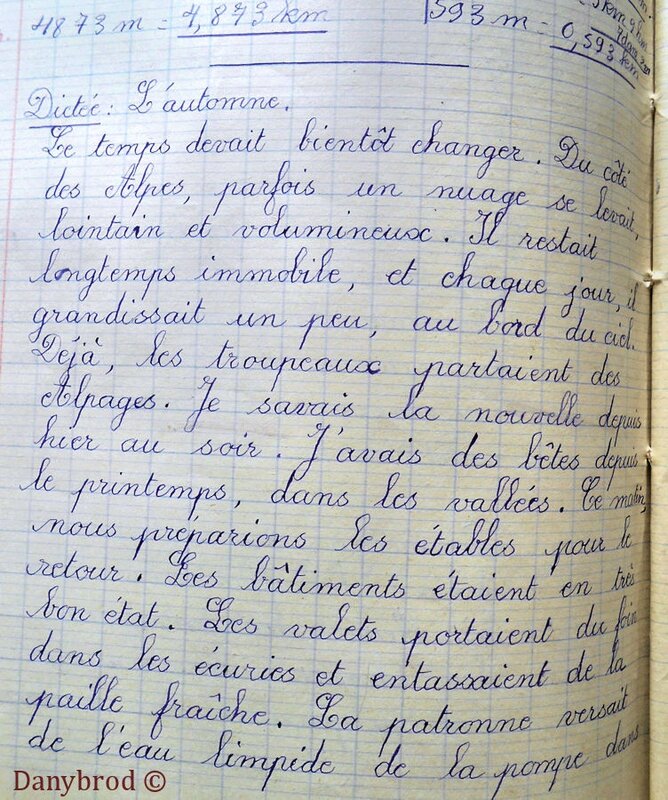 4873 m = 4,873 km
593 m = 0,593 km
Dictée : L'automne.
Le temps devait bientôt changer. Du côté
des Alpes, parfois un nuage se levait,
lointain et volumineux. Il restait
longtemps immobile, et chaque jour, il
grandissait un peu, au bord du ciel.
Déjà, les troupeaux partaient des
Alpages. Je savais la nouvelle depuis
hier au soir. J'avais des bêtes depuis
le printemps, dans les vallées. Ce matin,
nous préparions les étables pour le
retour. Les bâtiments étaient en très
bon état. Les valets portaient du foin
dans les écuries et entassaient de la
paille fraîche. La patronne versait
de l'eau limpide de la pompe dans
Danybrod ©